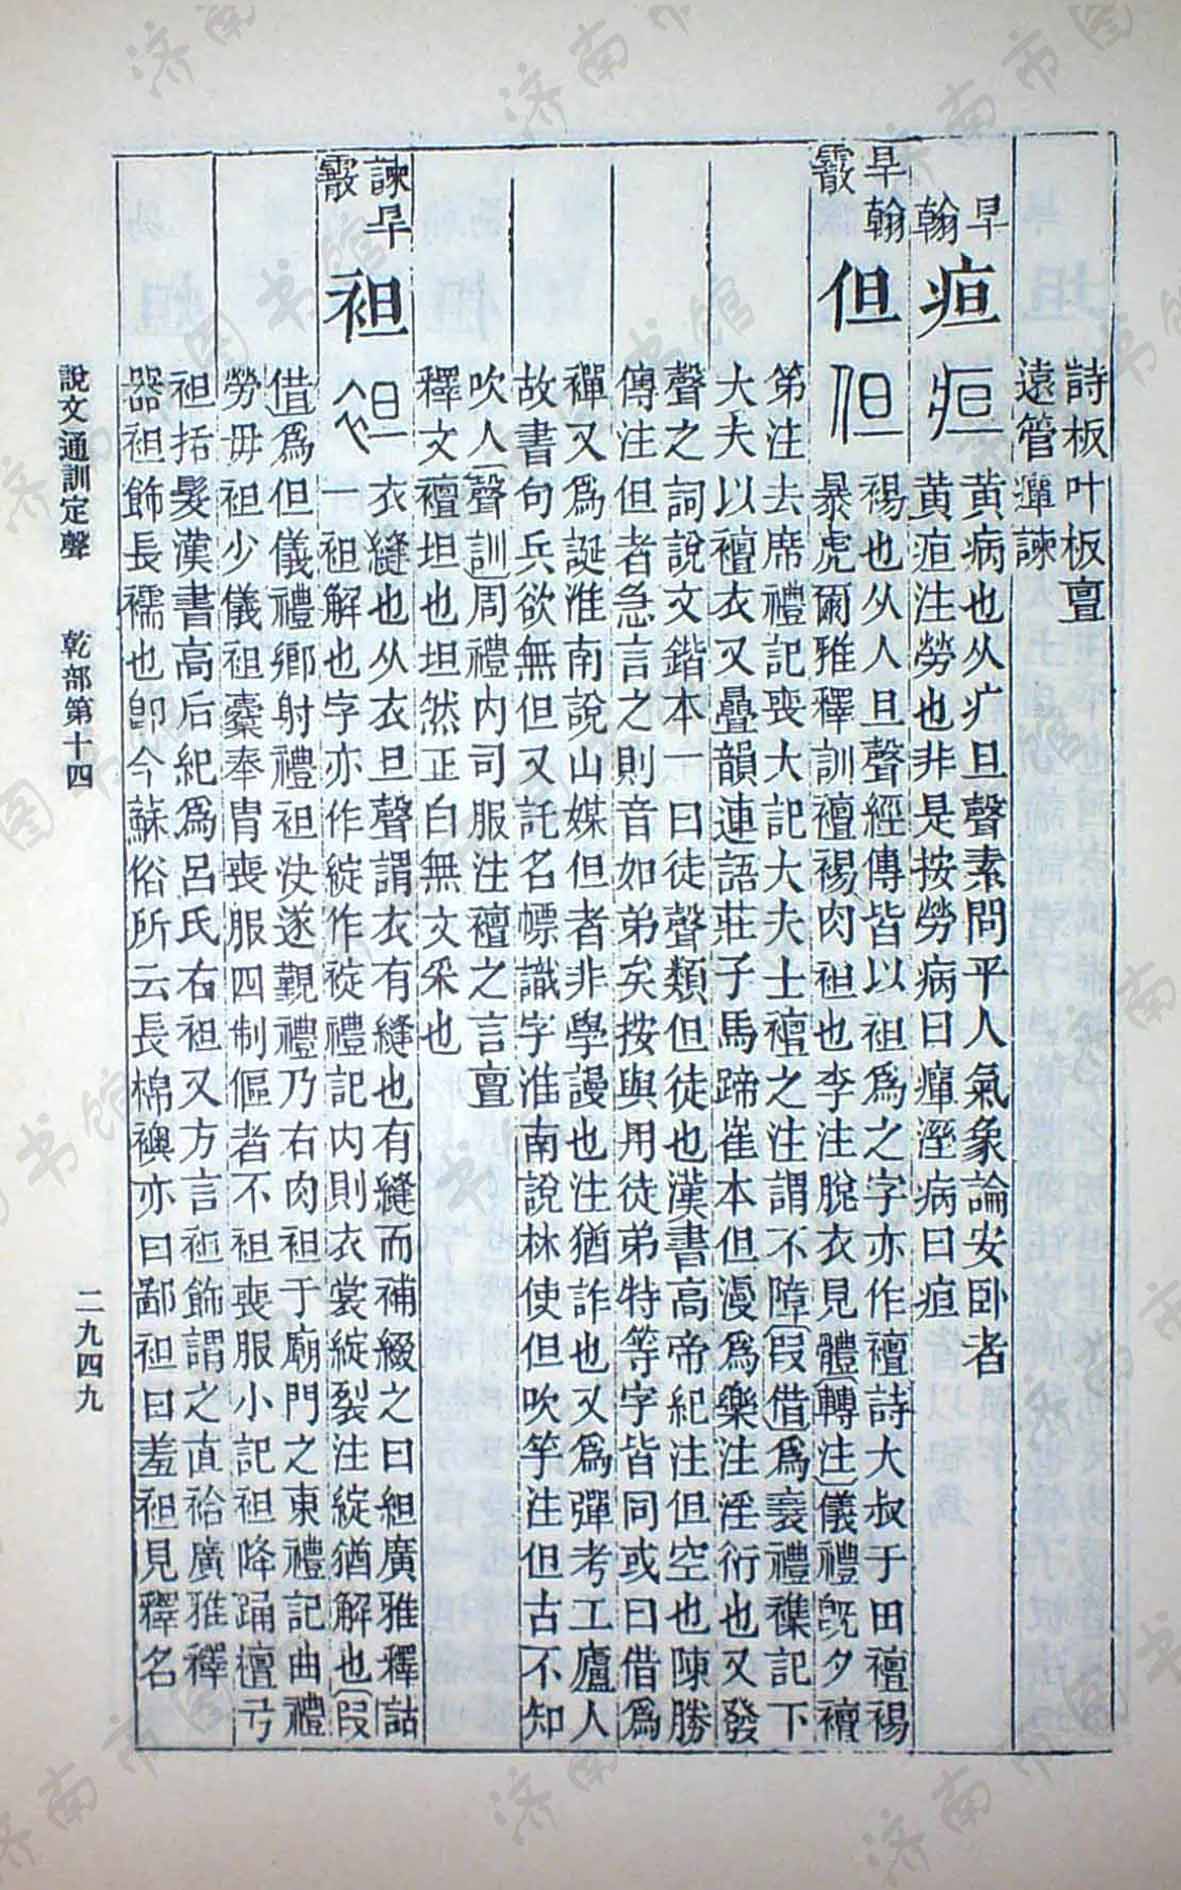 詩板叶板亶
遠管癉諫
旱
翰
疸
黃病也从疒旦聲素問平人氣象論安卧者
黃疸注勞也非是按勞病曰癉溼病曰疸
旱翰
霰
但
裼也从人旦聲經傳皆以袒爲之字亦作襢詩大叔于田襢裼
暴虎爾雅釋訓襢裼肉袒也李注脫衣見體轉注儀禮旣夕襢
第注去席禮記喪大記大夫士襢之注謂不障叚借爲襄禮襍記下
大夫以襢衣又疊韻連語莊子馬蹄崔本但漫爲樂注淫衍也又發
聲之詞說文鍇本一曰徒聲類但徒也漢書高帝紀注但空也陳勝
傳注但者急言之則音如弟矣按與用徒弟特等字皆同或曰借爲
襌又爲誕淮南說山媒但者非學謾也注猶詐也又爲彈考工廬人
故書句兵欲無但又託名幖識字淮南說林使但吹竽注但古不知
吹人聲訓周禮內司服注襢之言亶
釋文襢坦也坦然正白無文采也
諫旱
霰
袒
衣縫也从衣旦聲謂衣有縫也有縫而補綴之曰組廣雅釋詁
一袒解也字亦作綻作䘺禮記內則衣裳綻裂注綻猶解也叚
借爲但儀禮鄉射禮袒決遂覲禮乃右肉袒于廟門之東禮記曲禮
勞毋袒少儀袒櫜奉冑喪服四制傴者不袒喪服小記袒降踊襢弓
袒括髮漢書高后紀爲呂氏右袒又方言袒飾謂之直袷廣雅釋
器袒飾長襦也卽今蘇俗所云長棉襖亦曰鄙袒曰羞袒見釋名
說文通訓定聲 乾部第十四 二九四九